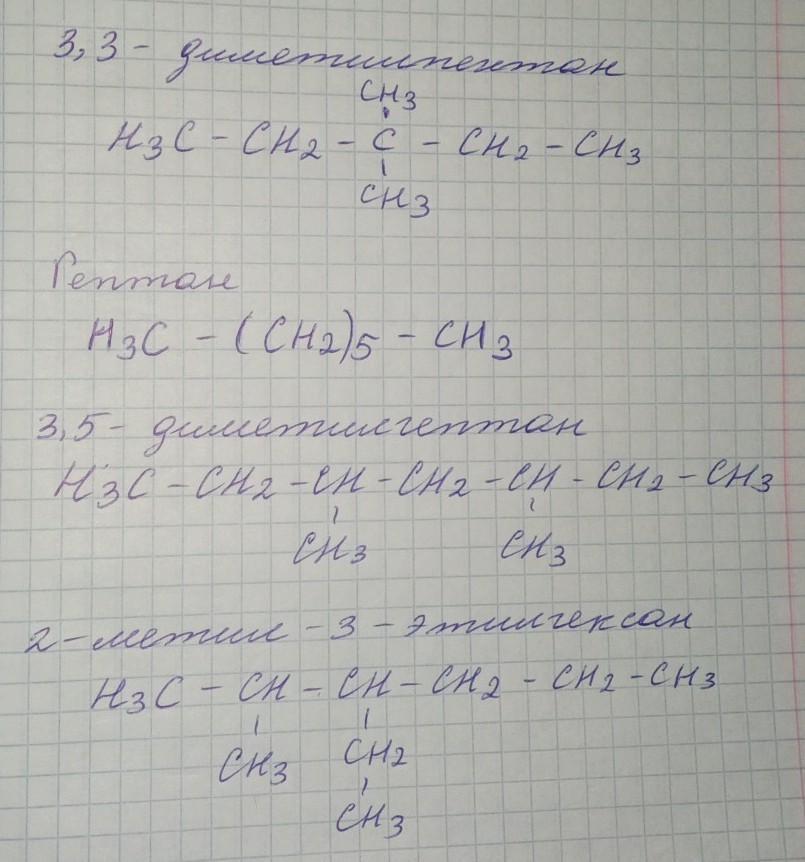 3,3 - диметилпентан
CH3
H3C - CH2 - C - CH2 - CH3
CH3
Гептан
H3C - (CH2)5 - CH3
3,5 - диметилгептан
H3C - CH2 - CH - CH2 - CH - CH2 - CH3
CH3 CH3
2 - метил - 3 - этилгексан
H3C - CH - CH - CH2 - CH2 - CH3
CH3 CH2
CH3